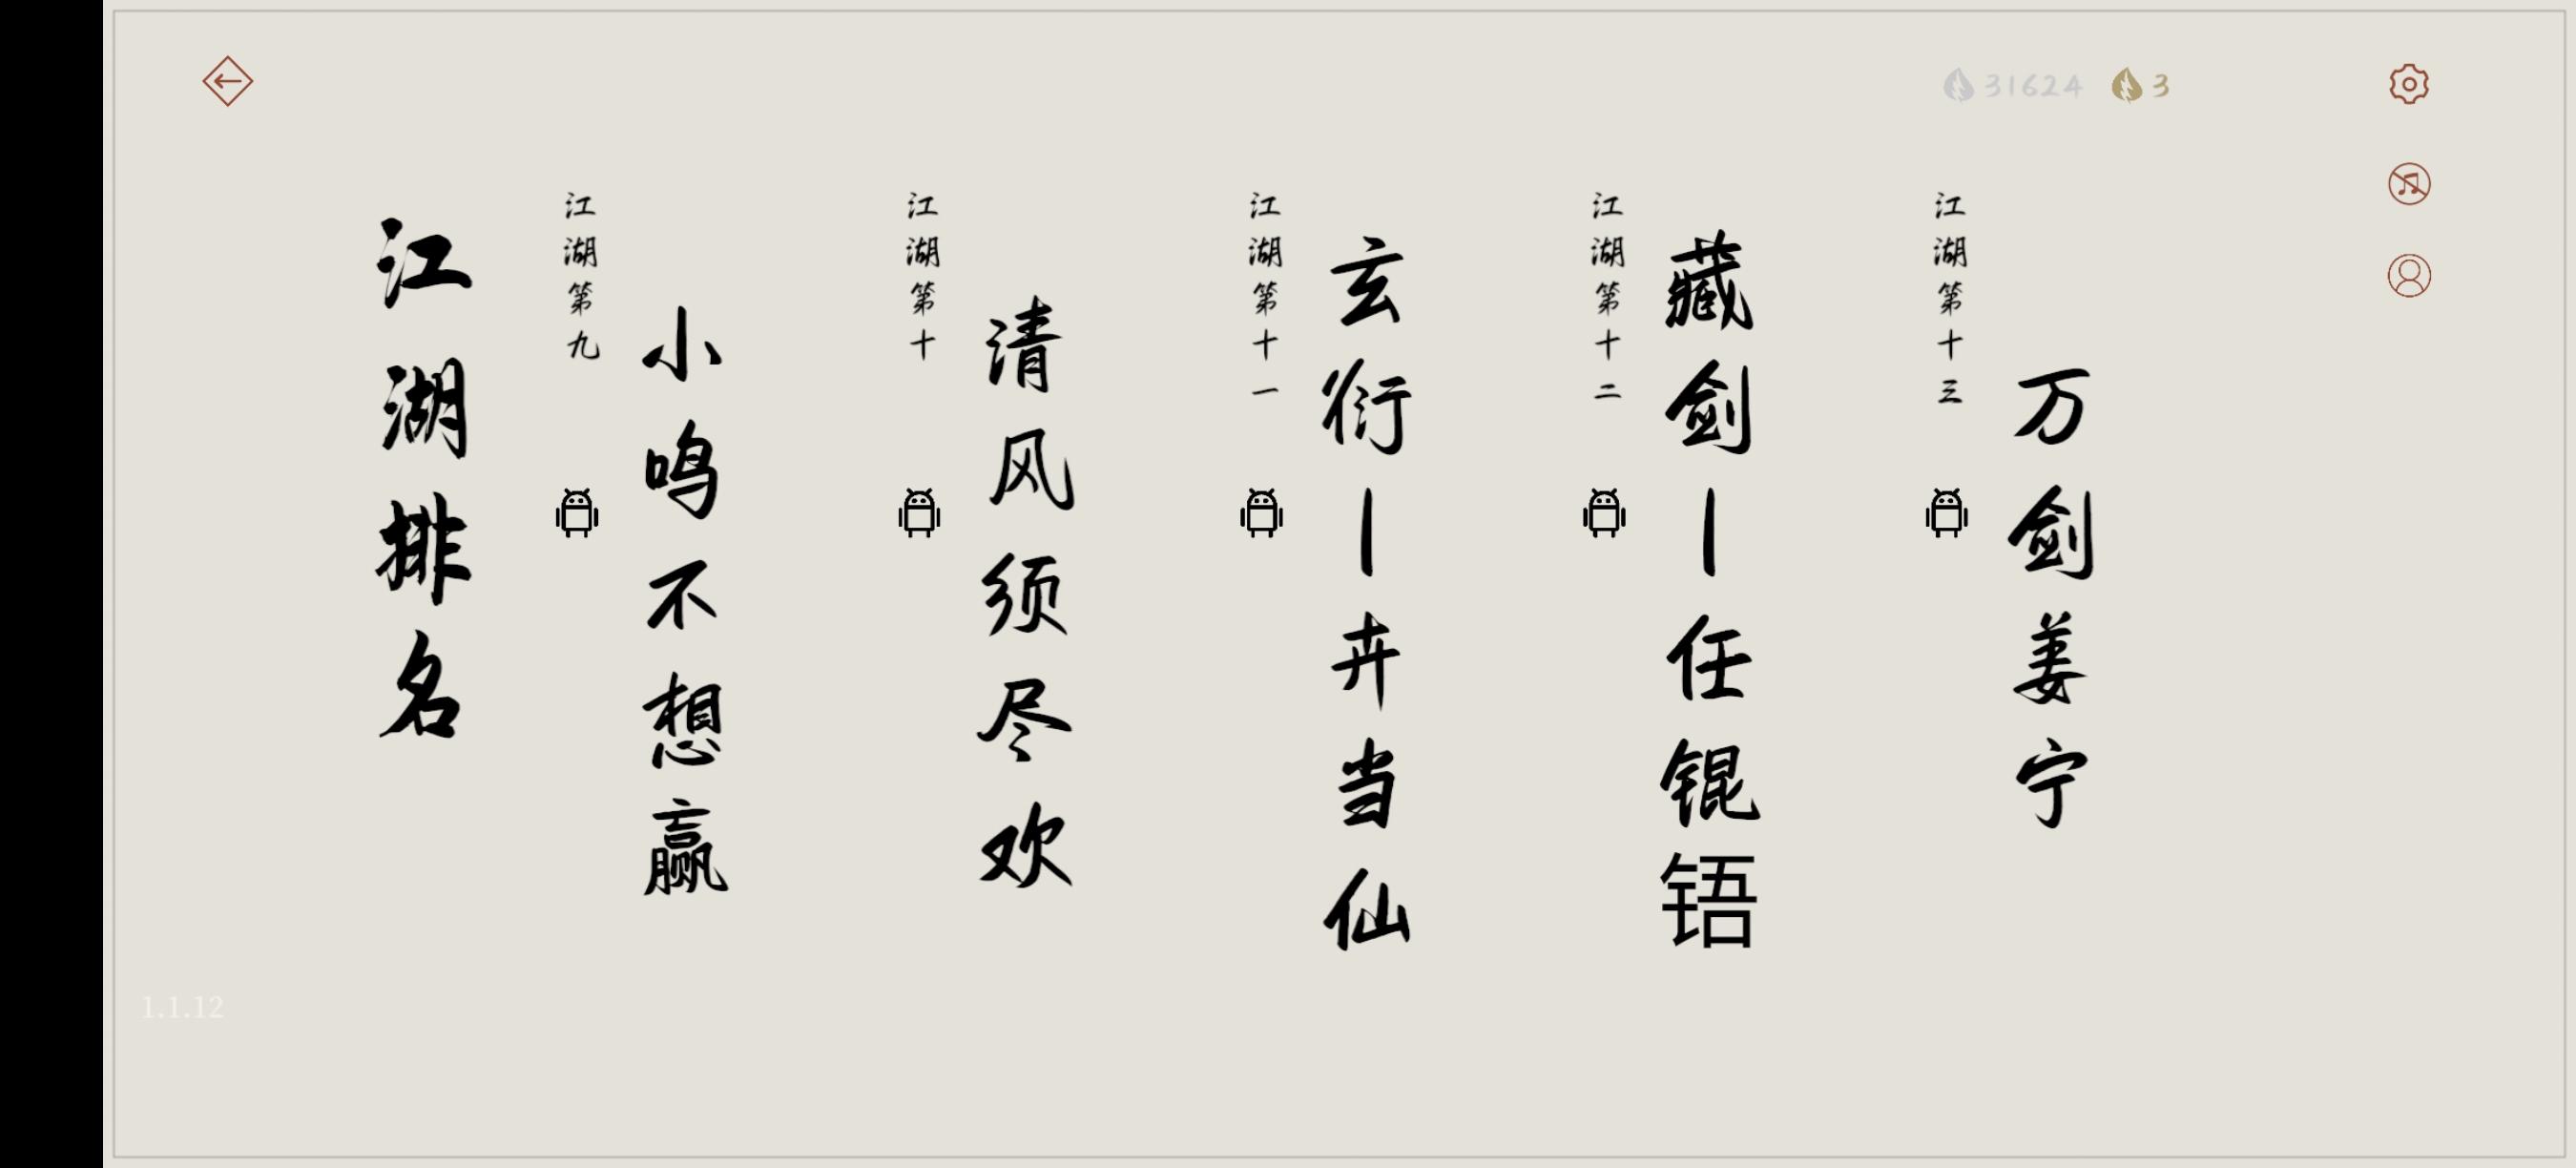 31624
3
江湖排名
江湖第九
小鸣不想赢
江湖第十
清风须尽欢
江湖第十一
玄衍丨卉当仙
江湖第十二
藏剑丨任锟铻
江湖第十三
万剑姜宁
1.1.12